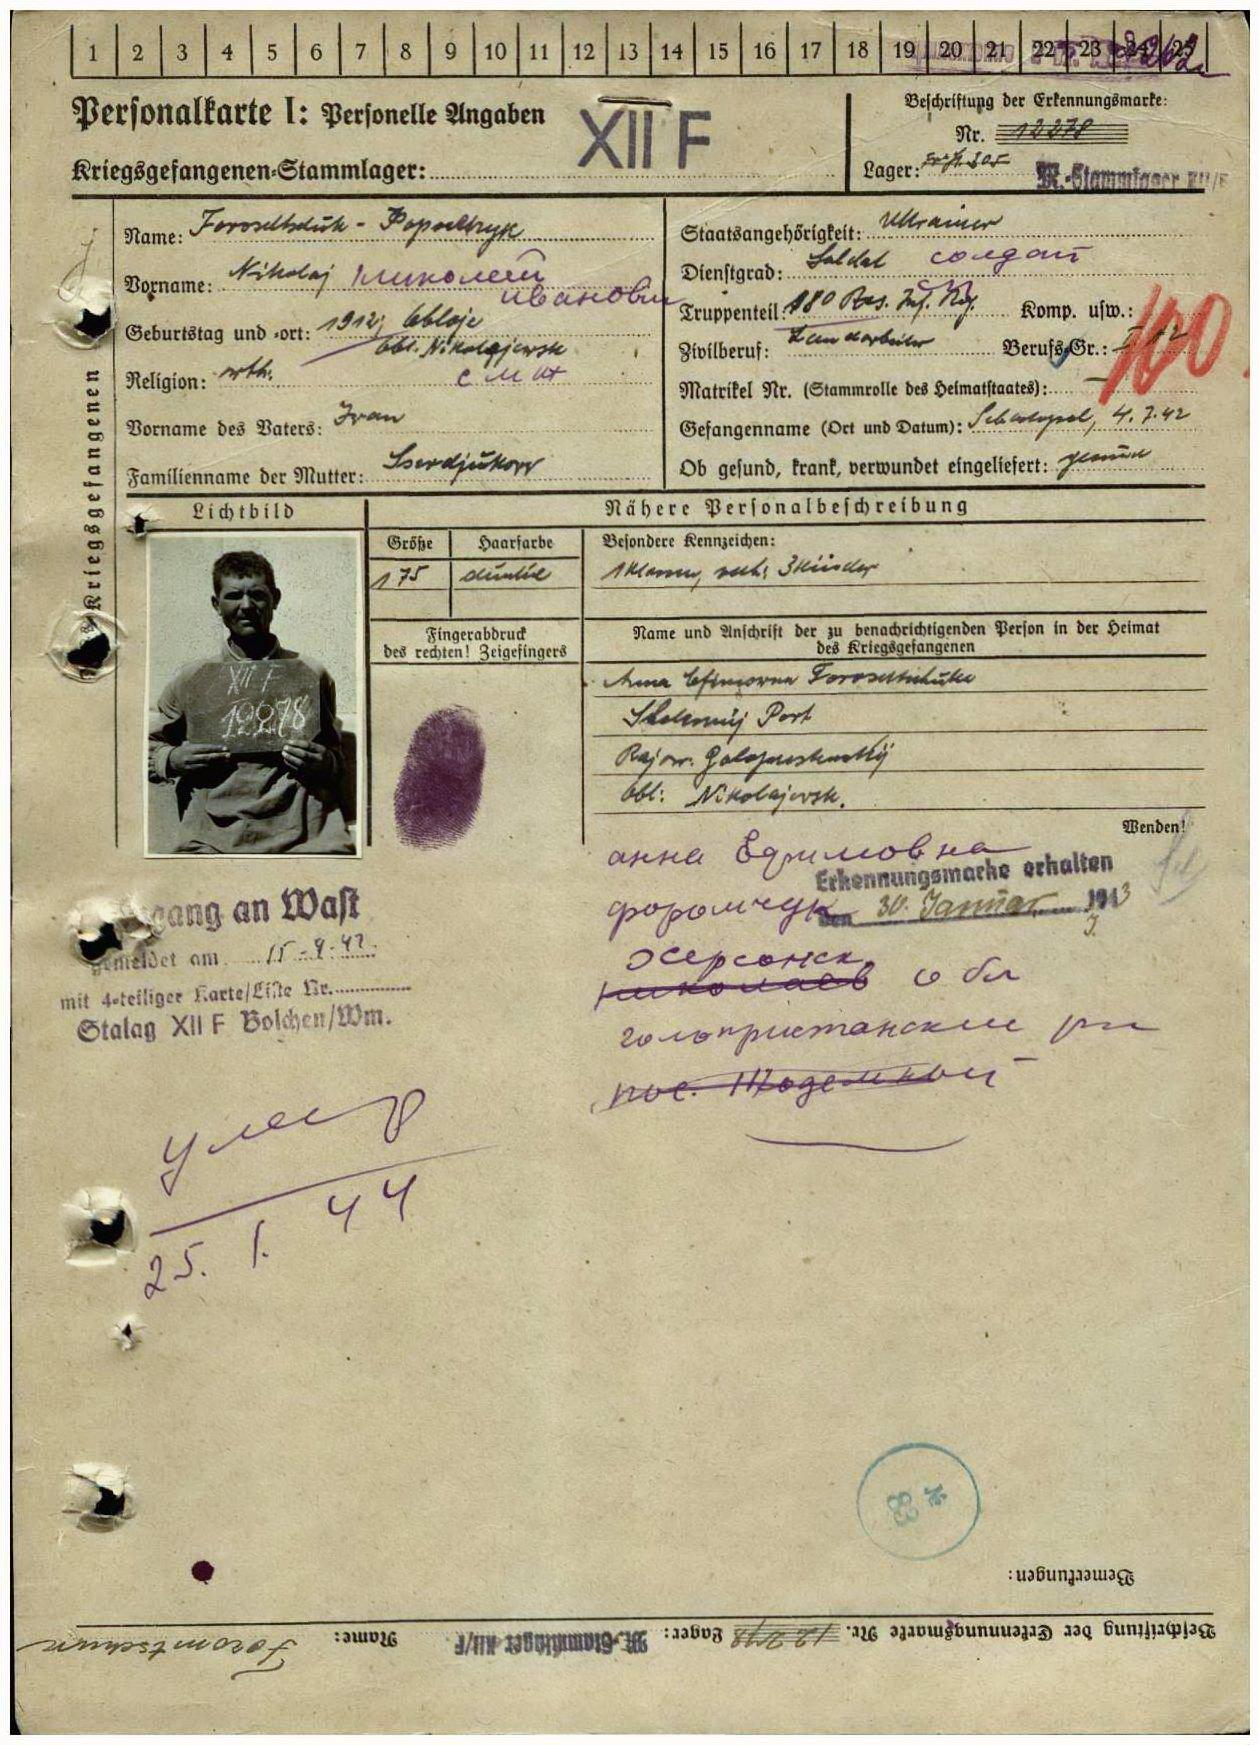 1 2 3 4 5 6 7 8 9 10 11 12 13 14 15 16 17 18 19 20 21 22 23 24 25
Personalkarte I: Personelle Angaben
XII F
Kriegsgefangenen-Stammlager:
Beschriftung der Erkennungsmarke:
Nr. 12278
Lager: 305
M.-Stammlager XII/F
Kriegsgefangenen
Name:
Vorname: Nikolaj Николай
Иванович
Geburtstag und -ort: 1912,
Obl. Nikolajewsk
Religion: orth.
Vorname des Vaters: Ivan
Familienname der Mutter:
Staatsangehörigkeit: Ukrainer
Dienstgrad: Soldat солдат
Truppenteil: 180 Inf. Komp. usw.:
Zivilberuf: Landarbeiter Berufs-Gr.: I 12
100
Matrikel Nr. (Stammrolle des Heimatstaates): –
Gefangenname (Ort und Datum): Sebastopol, 4.7.42
Ob gesund, krank, verwundet eingeliefert: gesund
Lichtbild
XII F
12278
Nähere Personalbeschreibung
Größe Haarfarbe
175 dunkel
Besondere Kennzeichen:
3 Kinder
Fingerabdruck
des rechten! Zeigefingers
Name und Anschrift der zu benachrichtigenden Person in der Heimat
des Kriegsgefangenen
Anna
Port
Rajon.
Obl: Nikolajewsk.
Wenden!
анна Ефимовна
Erkennungsmarke erhalten
den 30. Januar 1943
форомчук
херсонск
николаев обл
голопристанский
пос.
gang an Wast
gemeldet am 15-9-42.
mit 4-teiliger Karte/Liste Nr.
Stalag XII F Bolchen/Wm.
умер
25. 1. 44
№
83
Bemerkungen:
Beschriftung der Erkennungsmarke Nr. 12278 Lager: M.-Stammlager XII/F Name: Foromtschuk